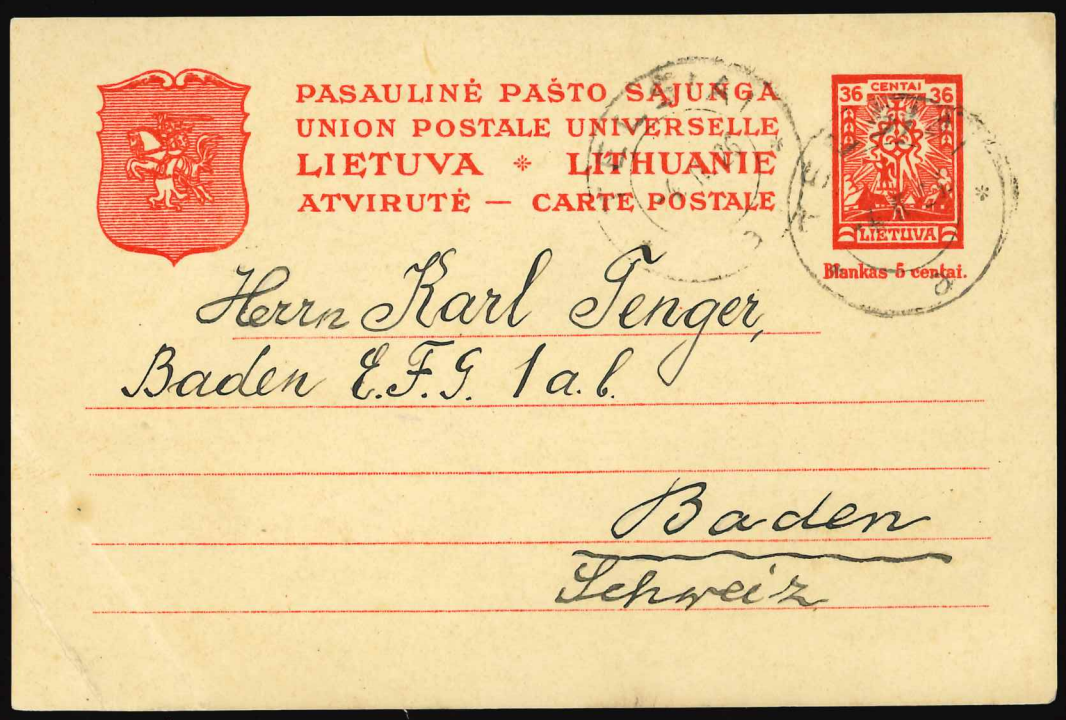 PASAULINĖ PAŠTO SĄJUNGA
UNION POSTALE UNIVERSELLE
LIETUVA * LITHUANIE
ATVIRUTĖ — CARTE POSTALE
36 CENTAI 36
LIETUVA
Blankas 5 centai.
Herrn Karl Tenger,
Baden E.F.G. 1 a. b.
Baden
Schweiz